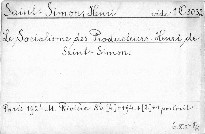 Saint-Simon, Henri vide: 1 C 2032
Le Socialisme des Producteurs. Henri de
Saint-Simon.
Paris 192* M. Rivière 8º [4]+194+[2] 1 portrait